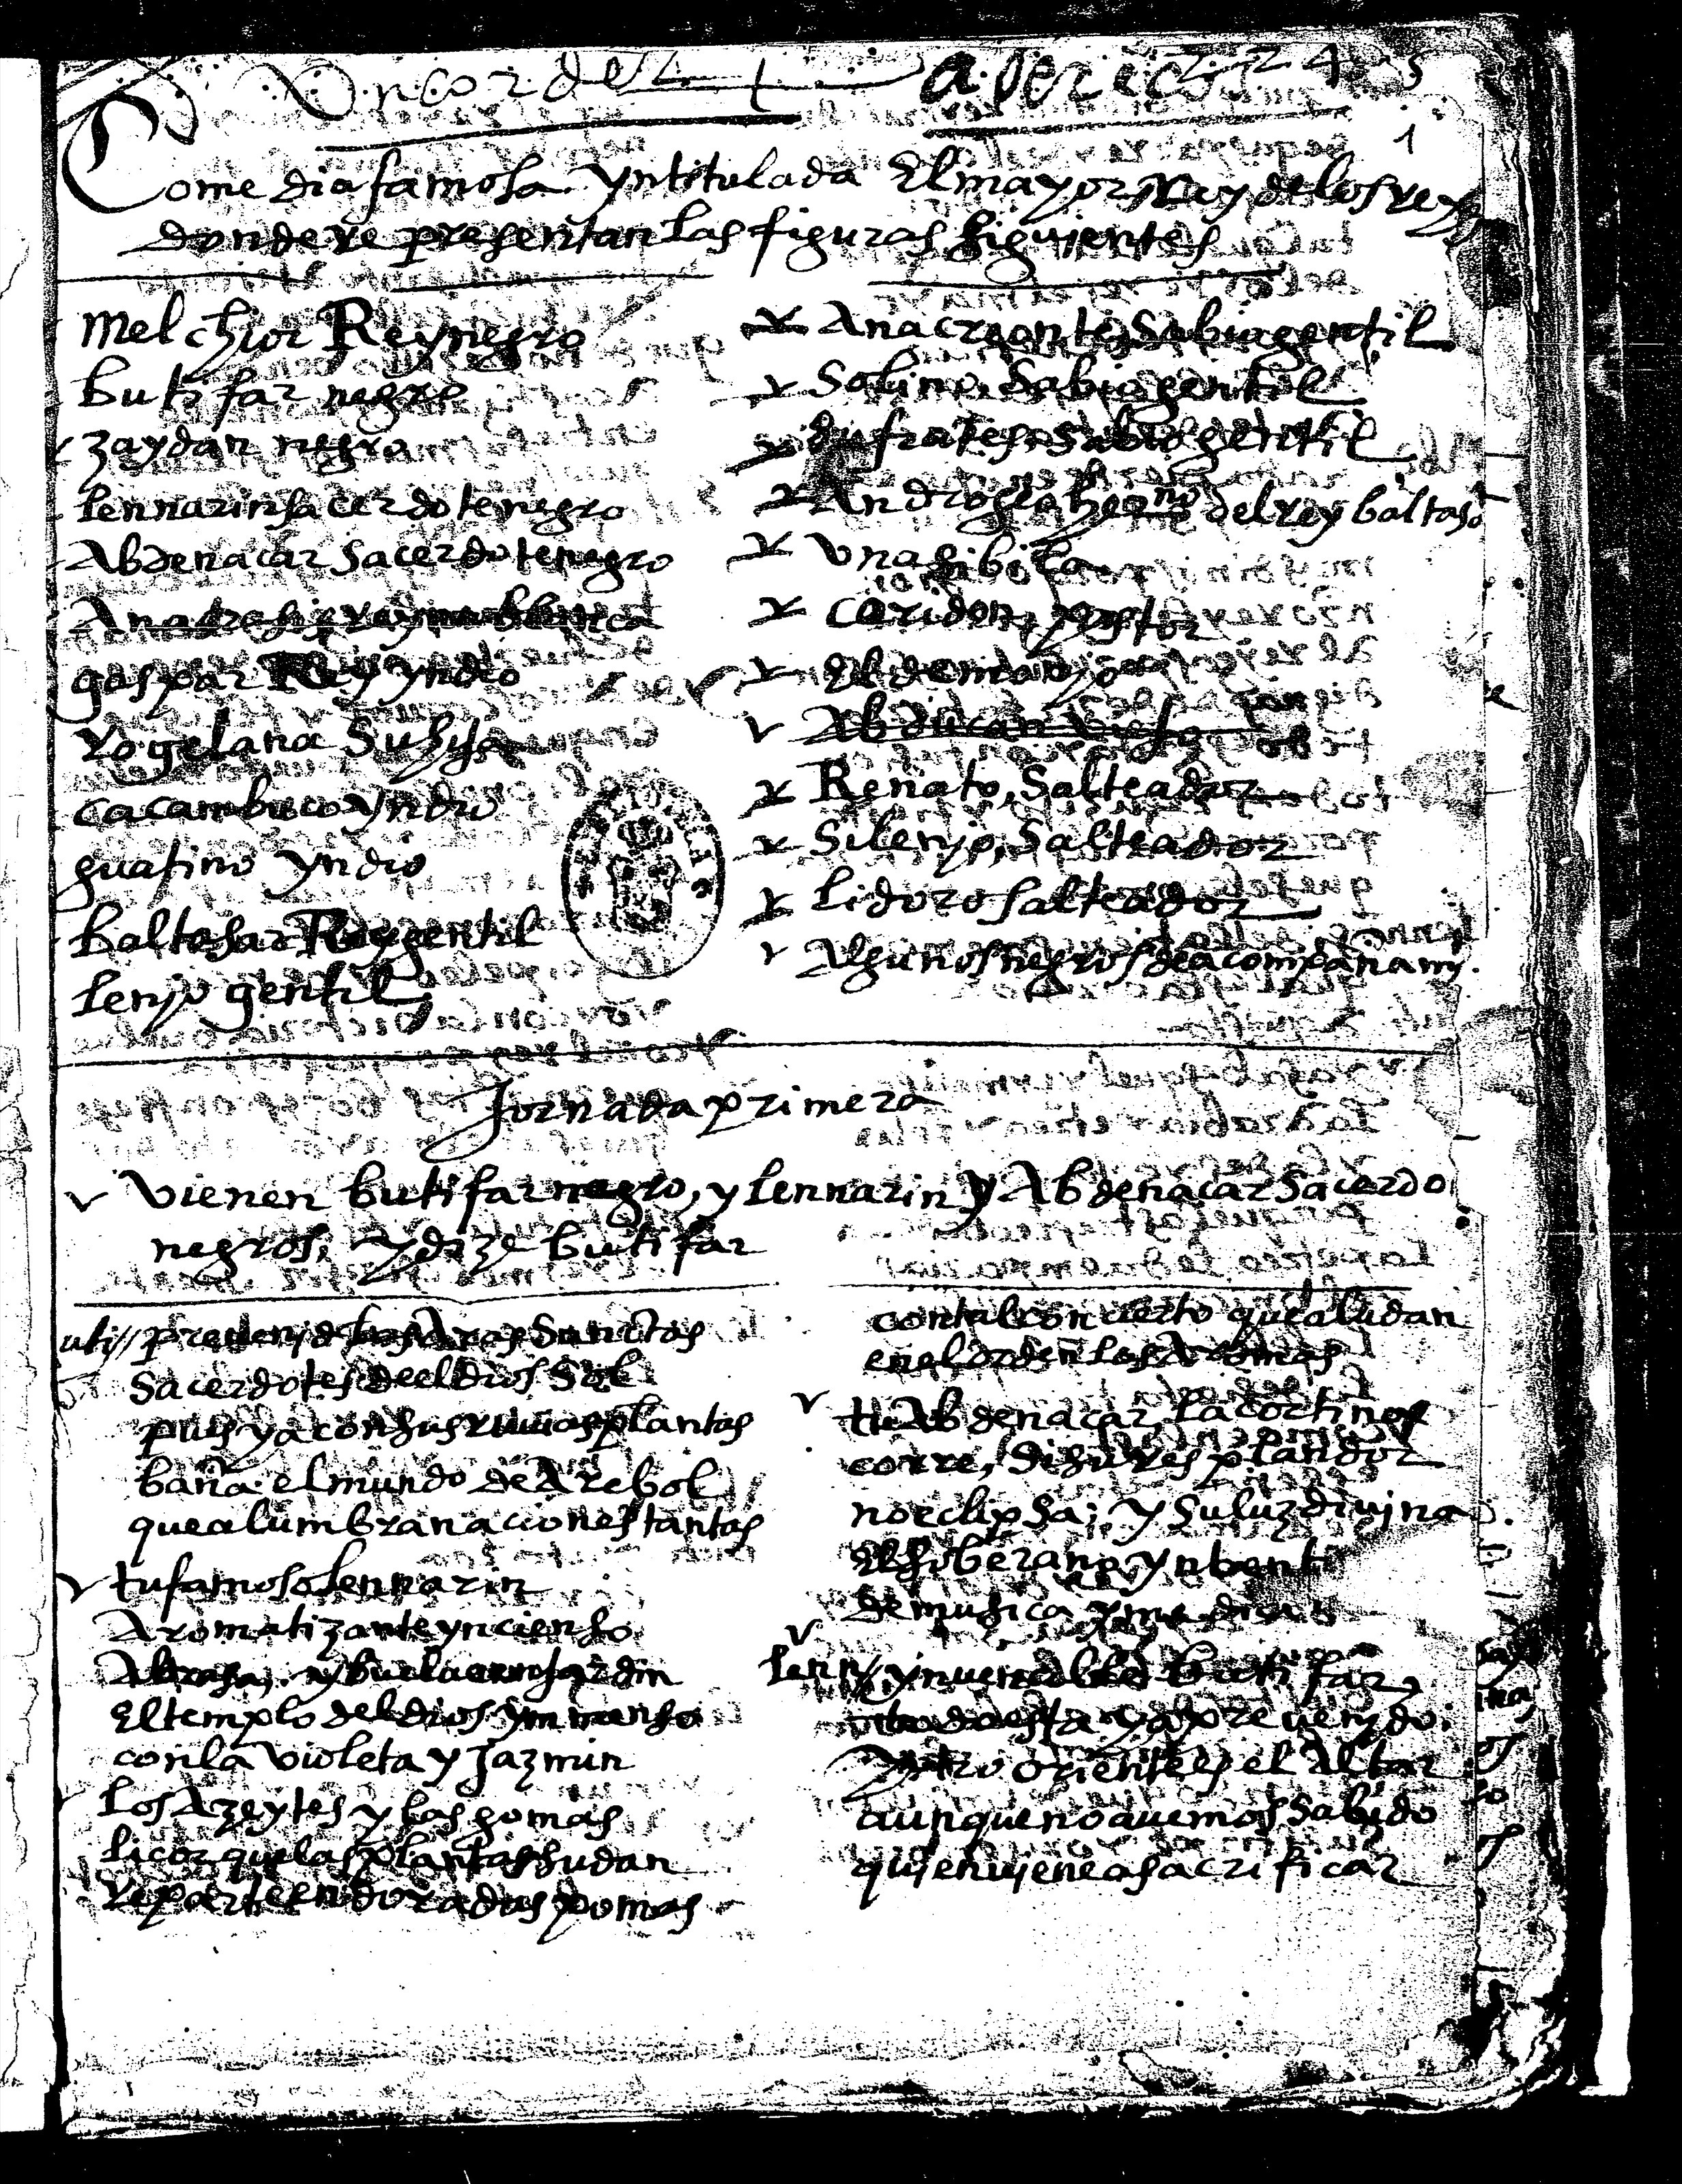 1
Comedia famosa yntitulada El mayor Rey de los reyes
donde re presentan las figuras siguientes
Melchior Rey negro
butifar negro
zaydan negro
lennarin sacerdote negro
Abdenacar sacerdote negro
gaspar Rey yndio
rogelana su hija
cacambuco yndio
guatimo yndio
baltasar Rey gentil
lenjo gentil
Anacreonte, Sabio gentil
Sabino, Sabio gentil
eufrates, sabio gentil
Androgeo herno del rey baltasa
Una sibila
Coridon, pastor
El demonjo
Renato, Salteador
Silenjo, Salteador
lidoro salteador
Algunos negros de acompañamj.
Jornada primera
vienen butifar negro, y lennarin y Abdenacar sacerdo
negros, y dize butifar
uti// prevenjd las Aras Sanctas
Sacerdotes de el dios Sol
pues ya con sus ruuias plantas
baña el mundo de Arebol
que alumbra naciones tantas
tu famoso lennarin
Aromatizante yncienso
Abrasa, y buela en jardin
El templo del dios ynmenso
con la violeta y Jazmin
los Azeytes y las gomas
licor que las plantas sudan
reparte en doradas pomas
con tal concierto que aludan
en el orden los Aromas
tu Abdenacar la cortina
corre, si su resplandor
no eclipsa; y su luz divjna
El soberano ynbent
de musica
lenn// ynuencible butifar
todo esta ya prevenjdo
oriente es el Altar
aunque no auemos sabido
qujen vjene a sacrificar